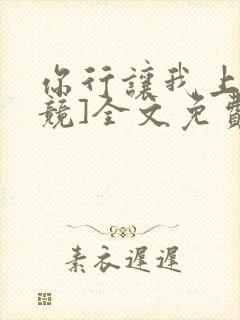 你行讓我上
競]全文免費
素衣遲遲